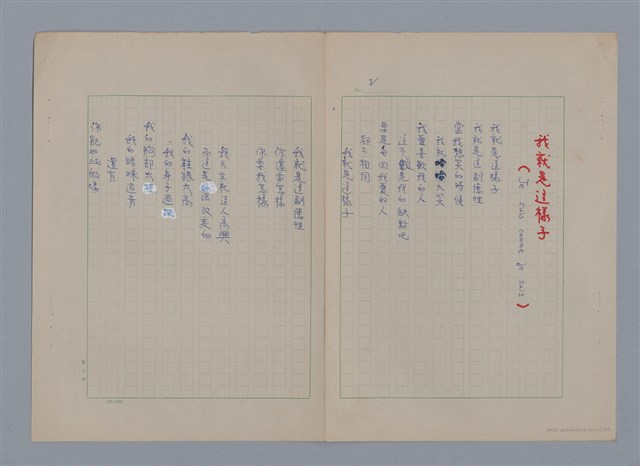 2
我就是這樣子
(Je suis comme je suis)
我就是這樣子
我就是這副德性
當我想笑的時候
我就哈哈大笑
我愛喜歡我的人
這不難是我的缺點吧
要是每回我愛的人
都不相同
我就是這樣子
我就是這副德性
你還要怎樣
你要我怎樣
我天生就逗人高興
而這是沒法改變的
我的鞋跟太高
我的身子過
我的胸部太
我的眼睛過青
還有
你能怎麼